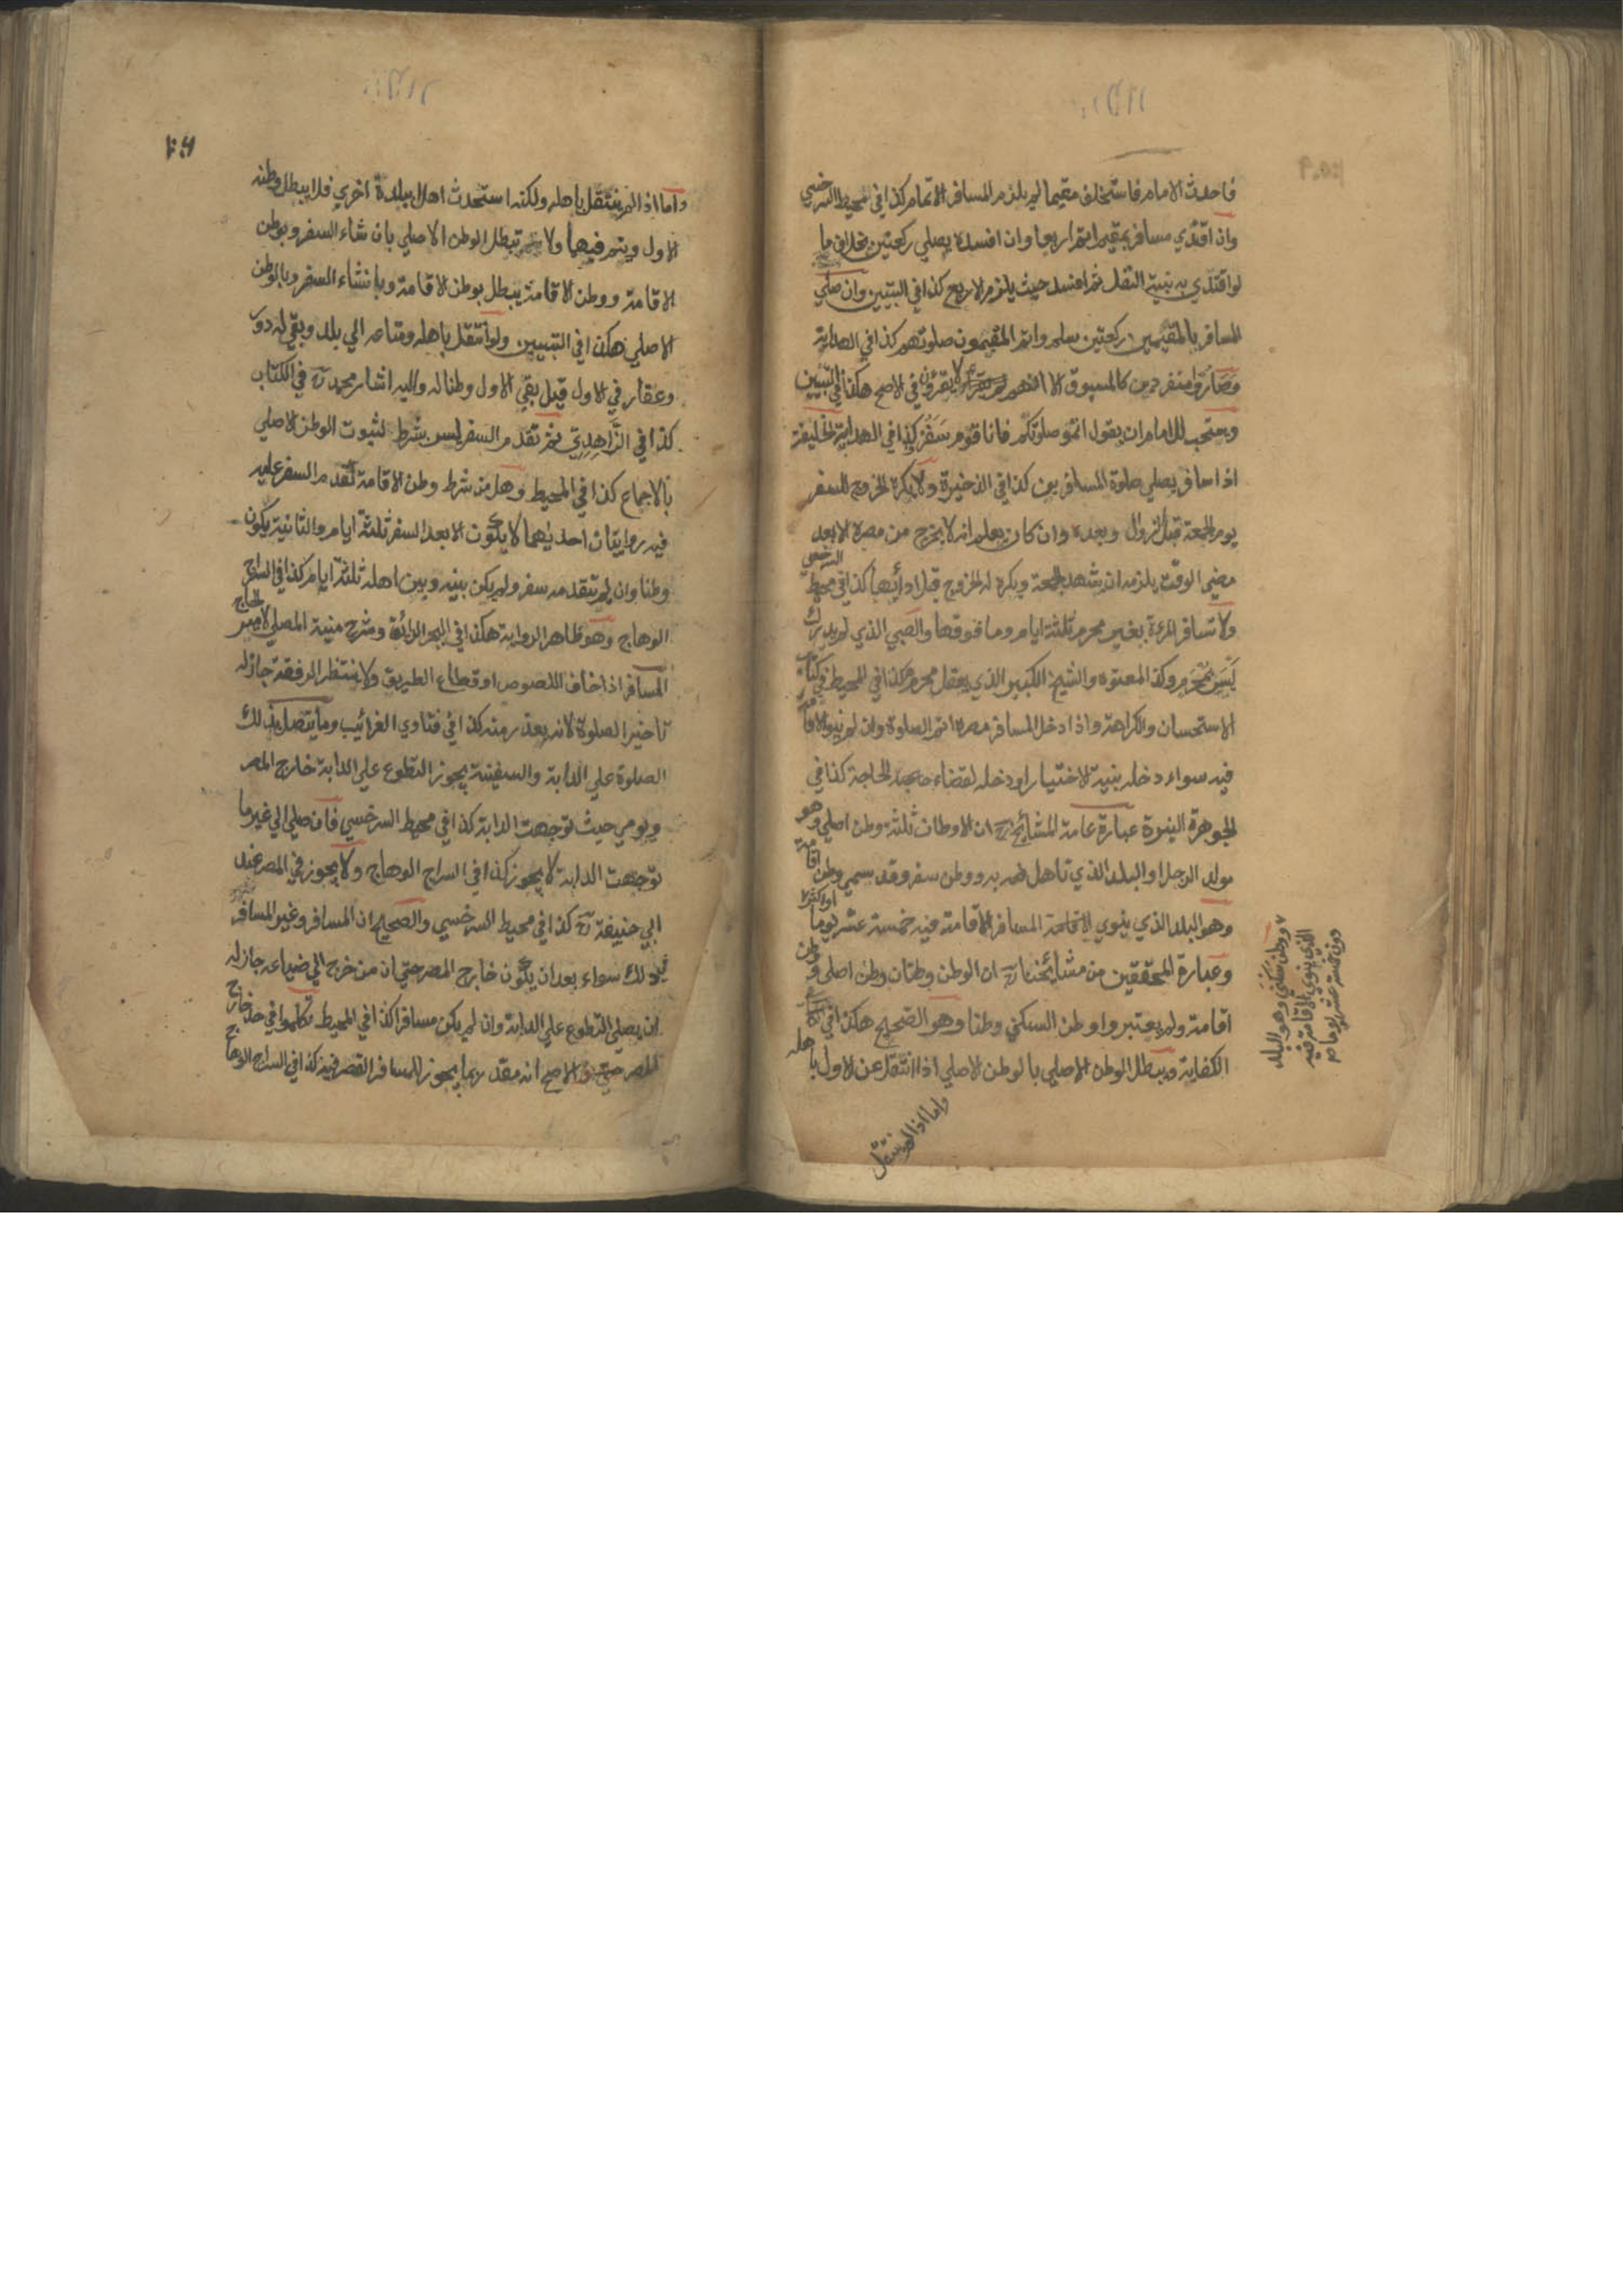 فاحدث الامام فاستخلف مقيما لم يلزم المسافر الاتمام كذا في المحيط السرخسي
وان اقتدي مسافر بمقيم اتم اربعا وان افسده يصلي ركعتين بخلاف ما
لو اقتدي به بنية النفل ثم افسد حيث يلزم الاربع كذا في التبيين وان صلي
المسافر بالمقيمين ركعتين سلم واتم المقيمون صلوتهم كذا في الهداية
وصاروا منفردين كالمسبوق الا انهم لا يقرؤن في الاصح هكذا في التبيين
ويستحب للامام ان يقول اتمو صلوتكم فانا قوم سفر كذا في الهداية الخليفة
اذا سافر يصلي صلوة المسافرين كذا في الذخيرة ولا يكره الخروج للسفر
يوم الجمعة قبل الزوال وبعده وان كان يعلم انه لا يخرج من مصره الا بعد
مضي الوقت يلزمه ان يشهد الجمعة ويكره له الخروج قبل ادائها كذا في محيط السرخسي
ولا تسافر المرءة بغير محرم ثلثة ايام وما فوقها والصبي الذي لم يدرك
ليس بمحرم وكذ المعتوه والشيخ الكبير الذي يعقل محرم هكذا في المحيط في كتاب
الاستحسان والكراهة واذا دخل المسافر مصره اتم الصلوة وان لم ينو الاقامة
فيه سواء دخله بنية الاختيار او دخله لقضاء الحاجة كذا في
الجوهرة النيرة عبارة عامة المشائخ رح ان الاوطان ثلثة وطن اصلي وهو
مولد الرجل او البلد الذي تاهل به ووطن سفر وقد سمي وطن اقامة
وهو البلد الذي ينوي المسافر الاقامة فيه خمسة عشر يوما او اكثر
ووطن سكني وهو البلد
الذي ينوي الاقامة فيه
دون خمسة عشر يوما صح
وعبارة المحققين من مشائخنا رح ان الوطن وطنان وطن اصلي ووطن
اقامة ولم يعتبروا وطن السكني وطنا وهو الصحيح هكذا في
الكفاية ويبطل الوطن الاصلي بالوطن الاصلي اذا انتقل عن الاول باهله
واما اذا لم ينتقل
واما اذا لم ينتقل باهله ولكنه استحدث اهلا ببلدة اخري فلا يبطل وطنه
الاول ويتم فيهما ولا تبطل الوطن الاصلي بانشاء السفر وبوطن
الاقامة ووطن الاقامة يبطل بوطن الاقامة وبانشاء السفر وبالوطن
الاصلي هكذا في التبيين ولو انتقل باهله ومتاعه الي بلد وبقي له دور
وعقار في الاول قيل بقي الاول وطنا له واليه اشار محمد رح في الكتاب
كذا في الزاهدي ثم تقدم السفر ليس بشرط لثبوت الوطن الاصلي
بالاجماع كذا في المحيط وهل من شرط وطن الاقامة تقدم السفر عليه
فيه روايتان احديهما لا يكون الا بعد السفر ثلثة ايام والثانية يكون
وطنا وان لم يتقدمه سفر ولم يكن بينه وبين اهله ثلثة ايام كذا في السراج
الوهاج وهو ظاهر الرواية هكذا في البحر الرائق وشرح منية المصلي لامير الحاج
المسافر اذا خاف اللصوص او قطاع الطريق ولا ينتظر الرفقة جاز له
تاخير الصلوة لانه بعذر منه كذا في فتاوي الغرائيب وما يتصل بذلك
الصلوة علي الدابة والسفينة يجوز التطوع علي الدابة خارج المصر
ويومي حيث توجهت الدابة كذا في محيط السرخسي فان صلي الي غير ما
توجهت الدابة لا يجوز كذا في السراج الوهاج ولا يجوز في المصر عند
ابي حنيفة رح كذا في محيط السرخسي والصحيح ان المسافر وغير المسافر
في ذلك سواء بعد ان يكون خارج المصر حتي ان من خرج الي ضياعه جاز له
ان يصلي التطوع علي الدابة وان لم يكن مسافرا كذا في المحيط تكلموا في حد خارج
المصر الاصح انه مقدر بما يجوز للمسافر القصر فيه كذا في السراج الوهاج